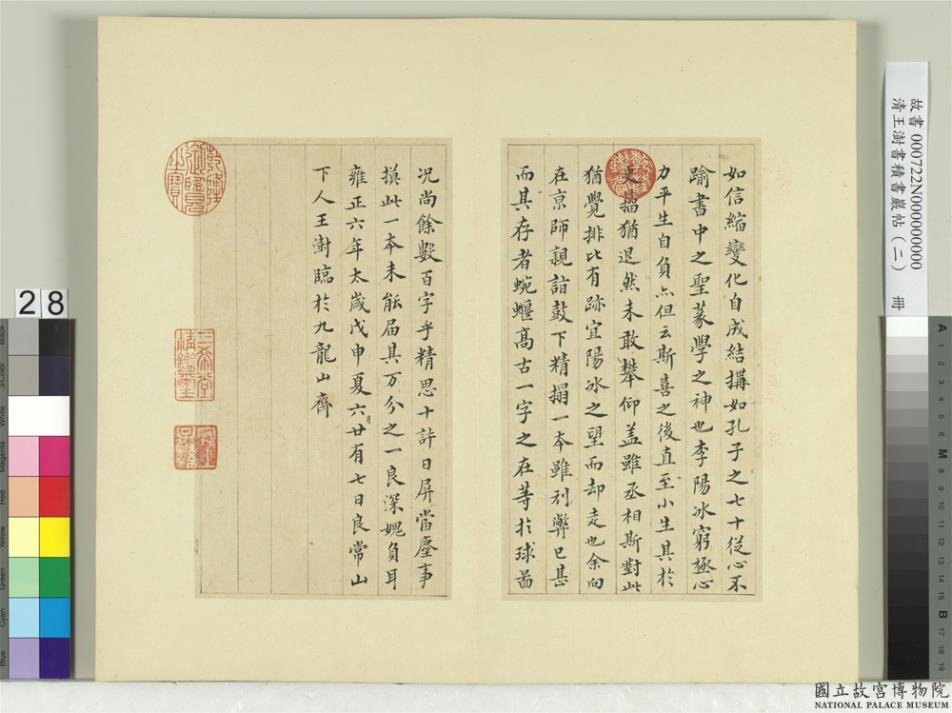 如信縮變化自成結搆如孔子之七十從心不
踰書中之聖篆學之神也李陽冰窮極心
力平生自負亦但云斯喜之後直至小生其於
史籀猶退然未敢攀仰盖雖丞相斯對此
猶覺排比有跡宜陽冰之望而却走也余向
在京師親詣鼓下精搨一本雖刓弊已甚
而其存者蜿蜒高古一字之在等於球啚
况尚餘數百字乎精思十許日屏當塵事
摸此一本未能届其万分之一良深媿負耳
雍正六年太歲戊申夏六廿有七日良常山
下人王澍臨於九龍山齋
乾隆
三希堂
精鑑璽
28
故書 000722N000000000
清王澍書積書巖帖(二) 冊
國立故宮博物院
NATIONAL PALACE MUSEUM